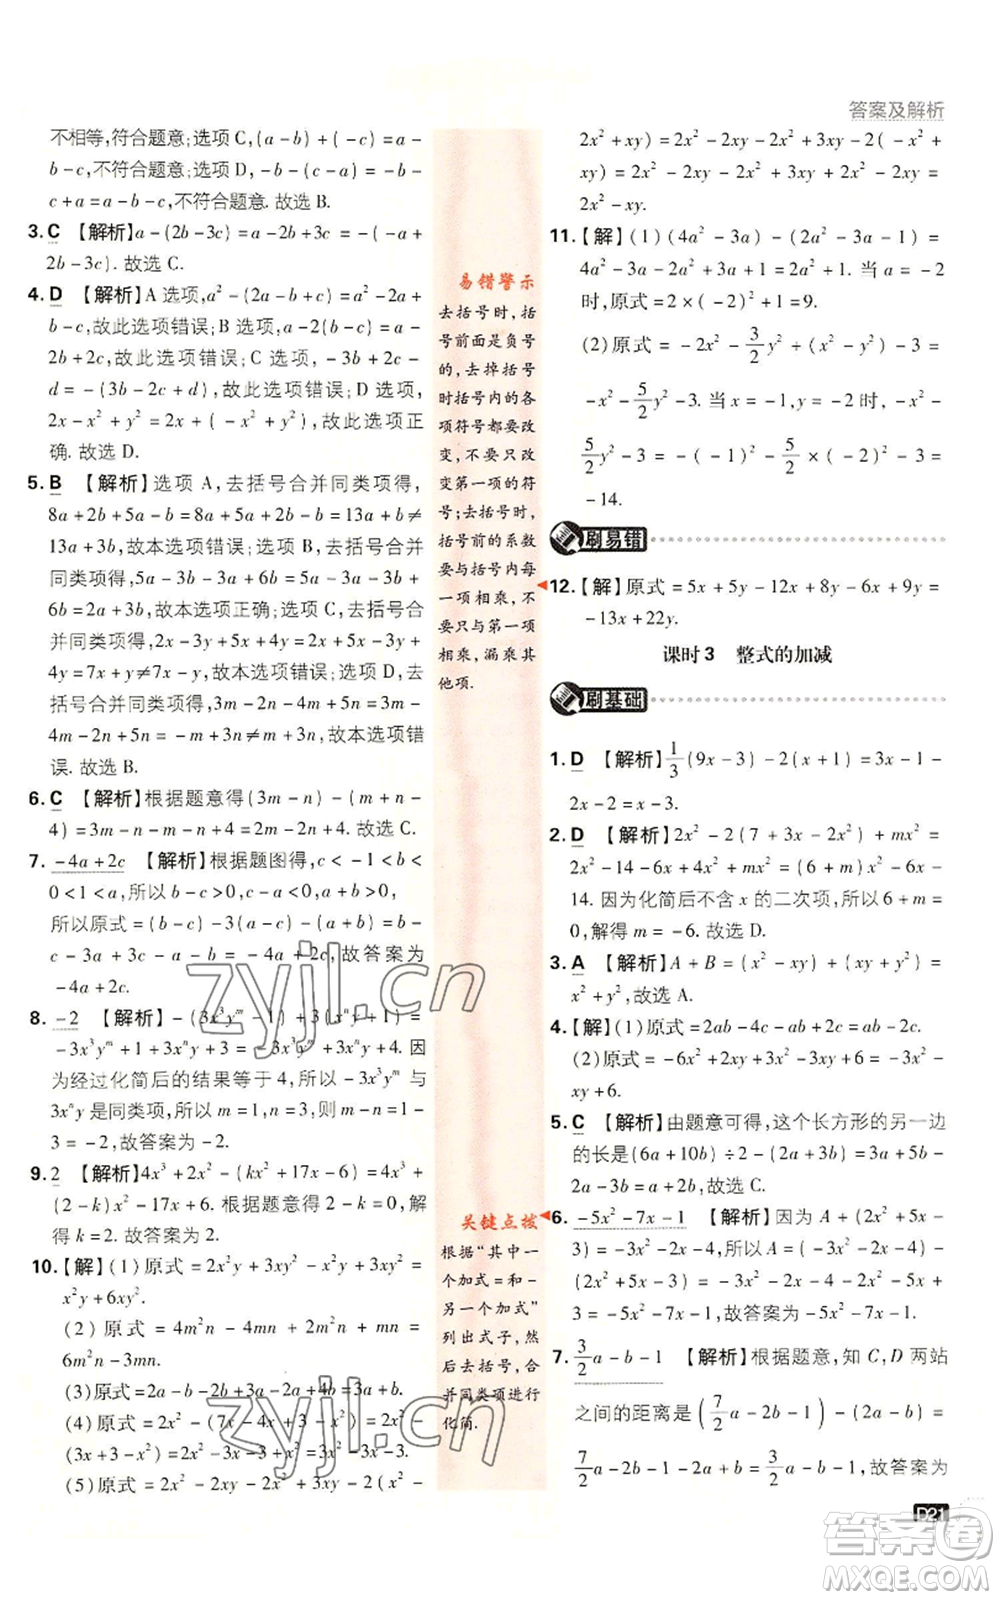 答案及解析
不相等,符合题意;选项 C,(a-b)+(-c)=a-
b-c,不符合题意;选项 D,-b-(c-a)=-b-
c+a=a-b-c,不符合题意. 故选 B.
3. C 【解析】a-(2b-3c)=a-2b+3c=-(-a+
2b-3c). 故选 C.
4. D 【解析】A 选项,a²-(2a-b+c)=a²-2a+
b-c,故此选项错误;B 选项,
故此选项错误;C 选项,
故此选项错误;D 选项,
2x-x²+y²=2x+(-x²+y²),故此选项正
确. 故选 D.
5. B 【解析】选项 A,去括号合并同类项得,
8a+2b+5a-b=8a+5a+2b-b=13a+b≠
13a+3b,故本选项错误;选项 B,去括号合并
同类项得,5a-3b-3a+6b=5a-3a-3b+
6b=2a+3b,故本选项正确;去括号合
并同类项得,2x-3y+5x+4y=2x+5x-3y+
4y=7x+y≠7x-y,故本选项错误;选项 D,去
括号合并同类项得,3m-2n-4m+5n=3m-
4m-2n+5n=-m+3n≠m-3n,故本选项错
误. 故选 B.
6. C 【解析】根据题意得(3m-n)-(m+n-
4)=3m-n-m-n+4=2m-2n+4. 故选 C.
7. -4a+2c 【解析】根据题图得,c<-1<b<
0<1<a,所以 b-c>0,c-a<0,a+b>0,
所以原式=(b-c)-3(a-c)-(a+b)=b-
c-3a+3c-a-b=-4a+2c,故答案为
-4a+2c.
8. -2 【解析】-(3x³yᵐ-1)+3(xⁿy+1)=
-3x³yᵐ+1+3xⁿy+3=-3x³yᵐ+3xⁿy+4. 因
为经过化简后的结果等于 4,所以-3x³yᵐ 与
3xⁿy 是同类项,所以 m=1,n=3,则 m-n=1-
3=-2,故答案为-2.
9. 2 【解析】4x³+2x²-(kx²+17x-6)=4x³+
(2-k)x²-17x+6. 根据题意得 2-k=0,解
得 k=2. 故答案为 2.
10.【解】(1)原式=2x²y+3xy-x²y+3xy=
x²y+6xy.
(2)原式=4m²n-4mn+2m²n+mn=
6m²n-3mn.
(3)原式=
(4)原式=
(3x+3)=
(5)原式=2x²-2xy-2xy-(x²-
易错警示
去括号时,括
号前面是负号
的,去掉括号
时括号内的各
项符号都要改
变,不要只改
变第一项的符
号;去括号时,
括号前的系数
要与括号内每
一项相乘,不
要只与第一项
相乘,漏乘其
他项.
关键点拨
根据“其中一
个加式=和-
另一个加式”
列出式子,然
后去括号,合
并同类项进行
化简.
2x²+xy)=2x²-2xy+3xy-2(-x²+
xy)=2x²-2xy+3xy-2x²+2x²-2xy=
2x²-xy.
11.【解】(1)(4a²-3a)-(2a²-3a-1)=
4a²-3a-2a²+3a+1=2a²+1. 当 a=-2
时,原式=2×(-2)²+1=9.
(2)原式=-2x²-3/2y²+(x²-y²)-3=
-x²-5/2y²-3. 当 x=-1,y=-2 时,-x²-
5/2y²-3=-(-1)²-5/2×(-2)²-3=
-14.
刷易错
12.【解】原式=5x+5y-12x+8y-6x+9y=
-13x+22y.
课时 3 整式的加减
刷基础
1. D 【解析】1/3(9x-3)-2(x+1)=3x-1-
2x-2=x-3.
2. D 【解析】2x²-2(7+3x-2x²)+mx²=
2x²-14-6x+4x²+mx²=(6+m)x²-6x-
14. 因为化简后不含 x 的二次项,所以 6+m=
0,解得 m=-6. 故选 D.
3. A 【解析】A+B=(x²-xy)+(xy+y²)=
x²+y²,故选 A.
4.【解】(1)原式=2ab-4c-ab+2c=ab-2c.
(2)原式=-6x²+2xy+3x²-xy+6=-3x²+
xy+6.
5. C 【解析】由题意可得,这个长方形的另一边
的长是(6a+10b)÷2-(2a)=3a+5b-
2a=a+5b,故选 C.
6. -5x²-7x-1 【解析】因为 A+(2x²+5x-
3)=-3x²-2x-4,所以 A=(-3x²-2x-4)-
(2x²+5x-3)=-3x²-2x-4-2x²-5x+
3=-5x²-7x-1,故答案为-5x²-7x-1.
7. 3/2a-b-1 【解析】根据题意,知 C,D 两站
之间的距离是(7/2a-2b-1)-(2a-b)=
7/2a-2b-1-2a+b=3/2a-b-1,故答案为
D21
zyjl.cn
zyjl.cn
答案圈
MXQE.COM